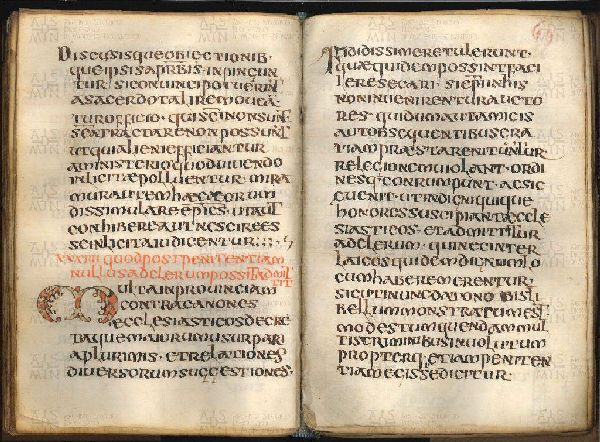 Discusisque obiectionib·
que ipsis a pr̄bis inpingun
tur· si conuinci potuerint
a sacerdotali remouean
tur officio· qui s̄c̄i non sunt
s̄c̄a tractare non possunt
ut qui alieni efficiantur
a ministerio quod uiuendo
inlicitae polluentur· mira
mur autem haec eorum
dissimulare ep̄is· ut aut
conhibere aut nescire es
se inlicita iudicentur
quod post penitentiam
nullus ad clerum possit admit
tit
Multa in prouinciam
contra canones
ecclesiasticos decre
taque maiorum usurpari
a plurimis· et relationes
diuersorum suggestiones·
didissime retulerunt·
quae quidem possint faci
le resecari· si ep̄i in his
non inuenirentur aucto
res· qui dum autamicis
aut obsequentibus gra
tiam praestare nituntur
relegionem uiolant· ordi
nesq· conrumpunt· ac sic
euenit· ut indigni quique
honores suscipiant eccle
siasticos· et admittitur
ad clerum· quine cinter
laicos quidem dignum lo
cum habere merentur·
sicut in unc dato nobis li
bellum monstratum est
modestum quendam mul
tis criminibus inuolutum
propterq· etiam peniten
tiam egisse dicitur·